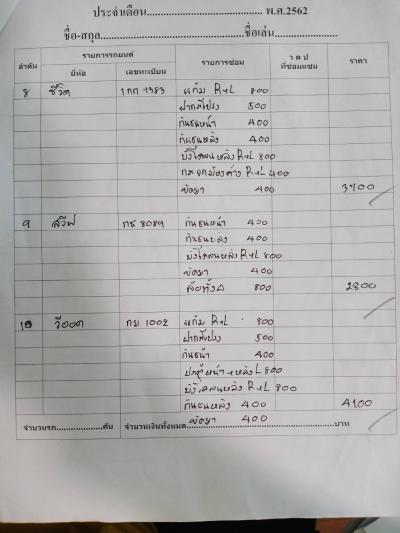 ประจำเดือน........................ พ.ศ.2562
ชื่อ-สกุล........................ชื่อเล่น........................
ลำดับ รายการรถยนต์ รายการซ่อม ว ด ป ราคา
ยี่ห้อ เลขทะเบียน ที่ซ่อมแซม
8 ซีวิค 1กก 1383 แก้ม R+L 800
ฝากระโปรง 500
กันชนหน้า 400
กันชนหลัง 400
บังโคลนหลัง R+L 800
กระจกมองข้าง R+L 400
ขัดยา 400 3700
9 สวิฟ 8089 กันชนหน้า 400
กันชนหลัง 400
บังโคลนหลัง R+L 800
ขัดยา 400
ล้อทั้ง 4 800 2800
10 วีออส กย 1002 แก้ม R+L 800
ฝากระโปรง 500
กันหน้า 400
ประตูหน้า+หลัง L 800
บังโคลนหลัง R+L 800
กันชนหลัง 400 4100
ขัดยา 400
จำนวนรถ....................คัน จำนวนเงินทั้งหมด........................บาท